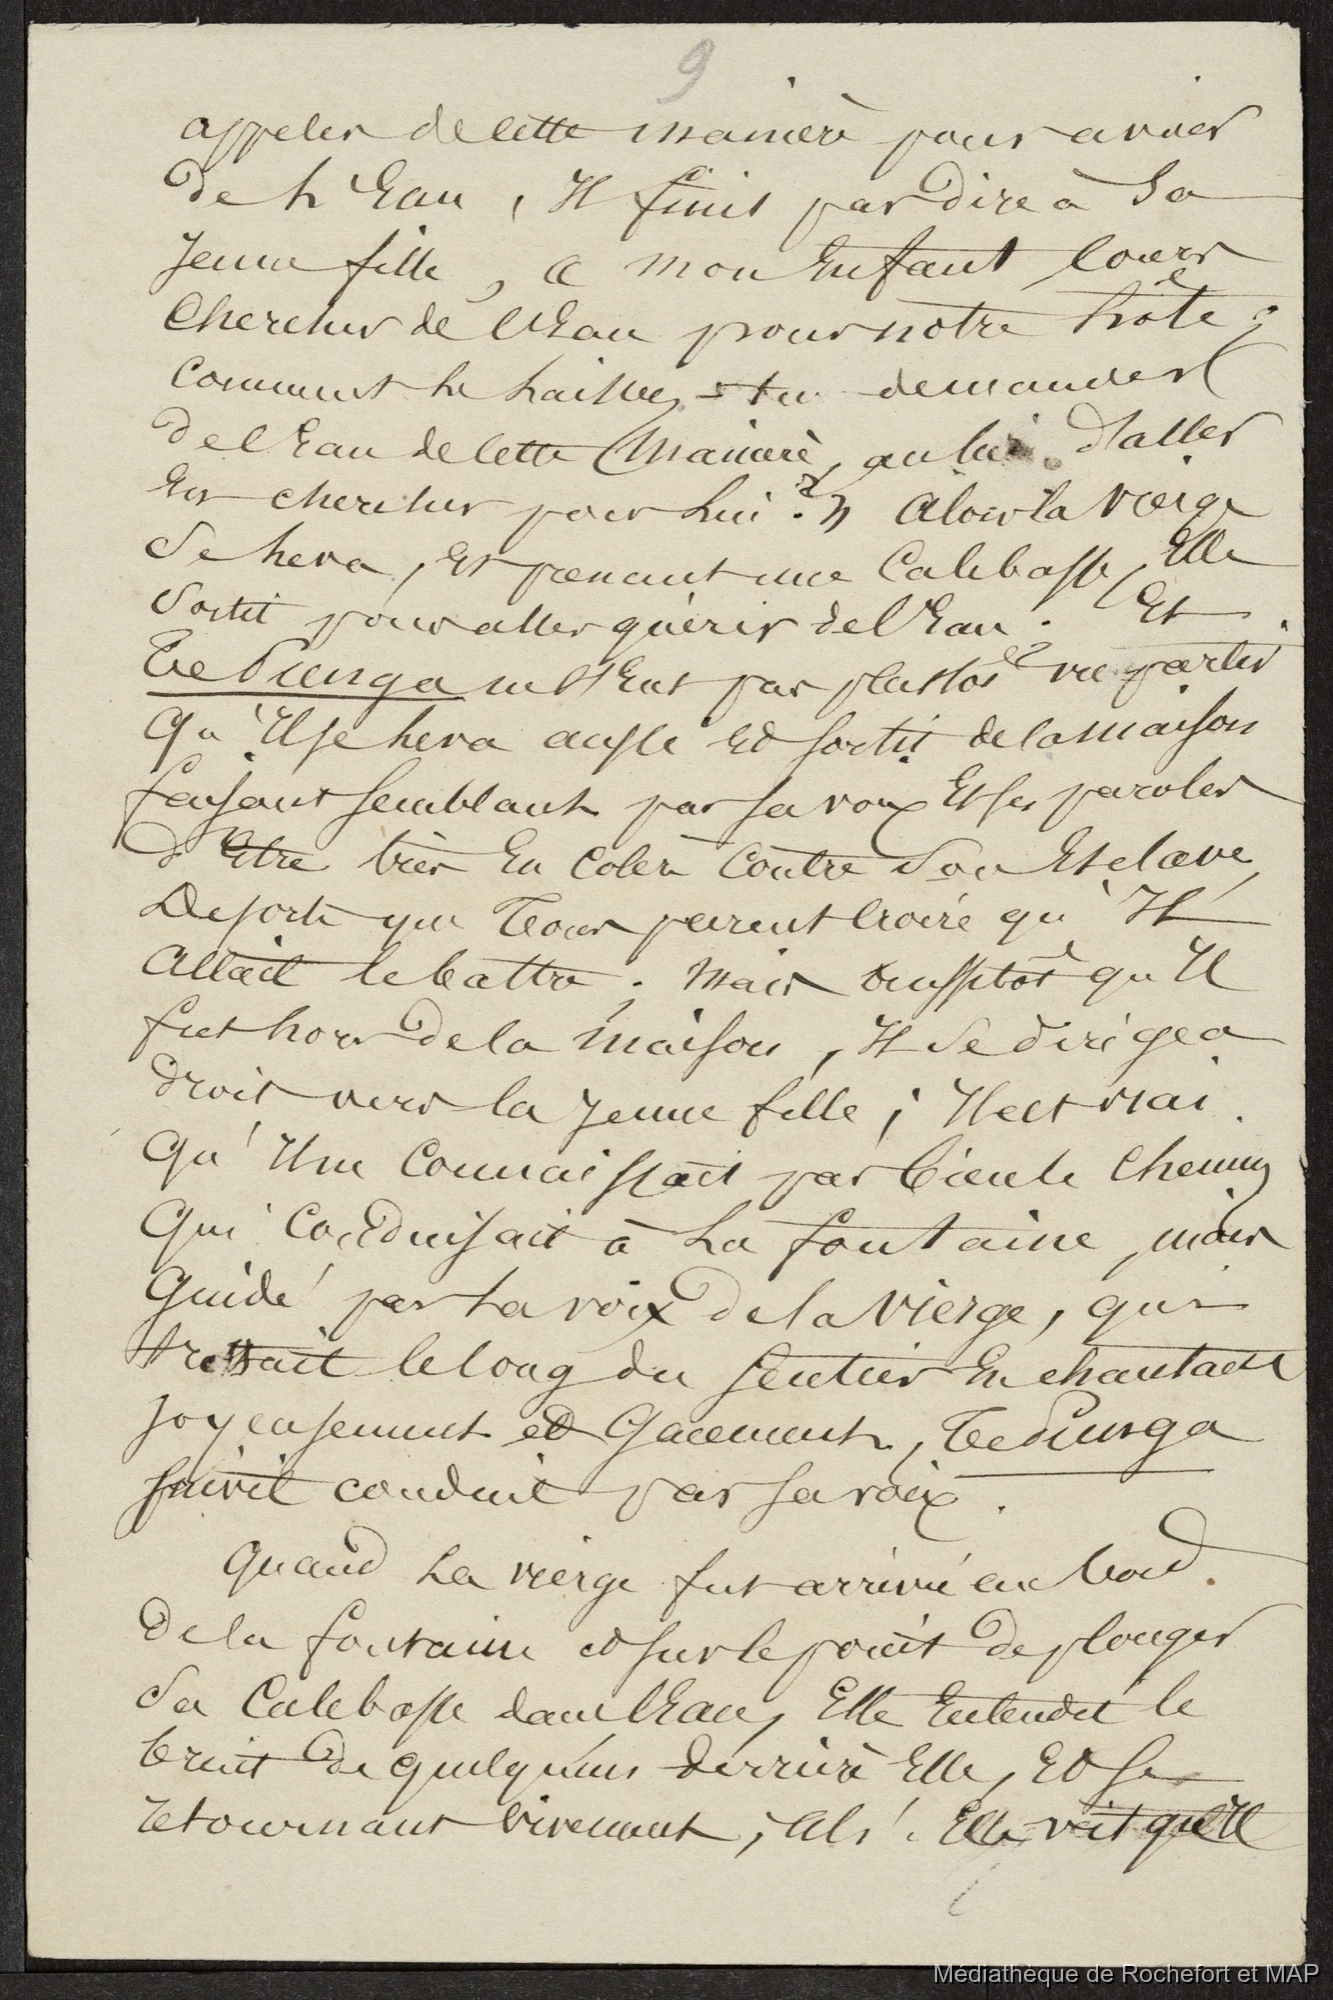 9
appeler de cette manière pour avoir
de L'Eau, Il finit par dire à Sa
Jeune fille, O mon Enfant cours
Chercher de l'Eau pour notre hôte;
Comment Le Laisses-tu demander
de l'Eau de cette Manière, au lieu d'aller
En chercher pour Lui? » Alors la Vierge
Se Leva, Et prenant une Calebasse, Elle
Sortit pour aller quérir de l'Eau; Et
Te Ponga ne l'Eut pas plustôt vue partir
Qu'Il se Leva aussi Et sortit de la maison
faisant semblant par sa voix Et ses paroles
d'Etre très En Colère Contre Son Esclave,
De sorte que Tous purent Croire qu'Il
Allait le battre; Mais aussitôt qu'Il
fut hors de la maison, Il Se dirigea
droit vers la Jeune fille; Il est vrai
Qu'Il ne Connaissait pas bien le Chemin
Qui Conduisait à La fontaine, mais
Guidé par La voix de la Vierge, qui
trottait le long du sentier En chantant
joyeusement et Gaiement, Te Ponga
suivit conduit par sa voix.
Quand La vierge fut arrivée au bord
de la fontaine et sur le point de plonger
Sa Calebasse dans l'Eau, Elle Entendit le
bruit de quelqu'un derrière Elle, Et se
retournant vivement, Ah! Elle vit qu'Il
Médiathèque de Rochefort et MAP